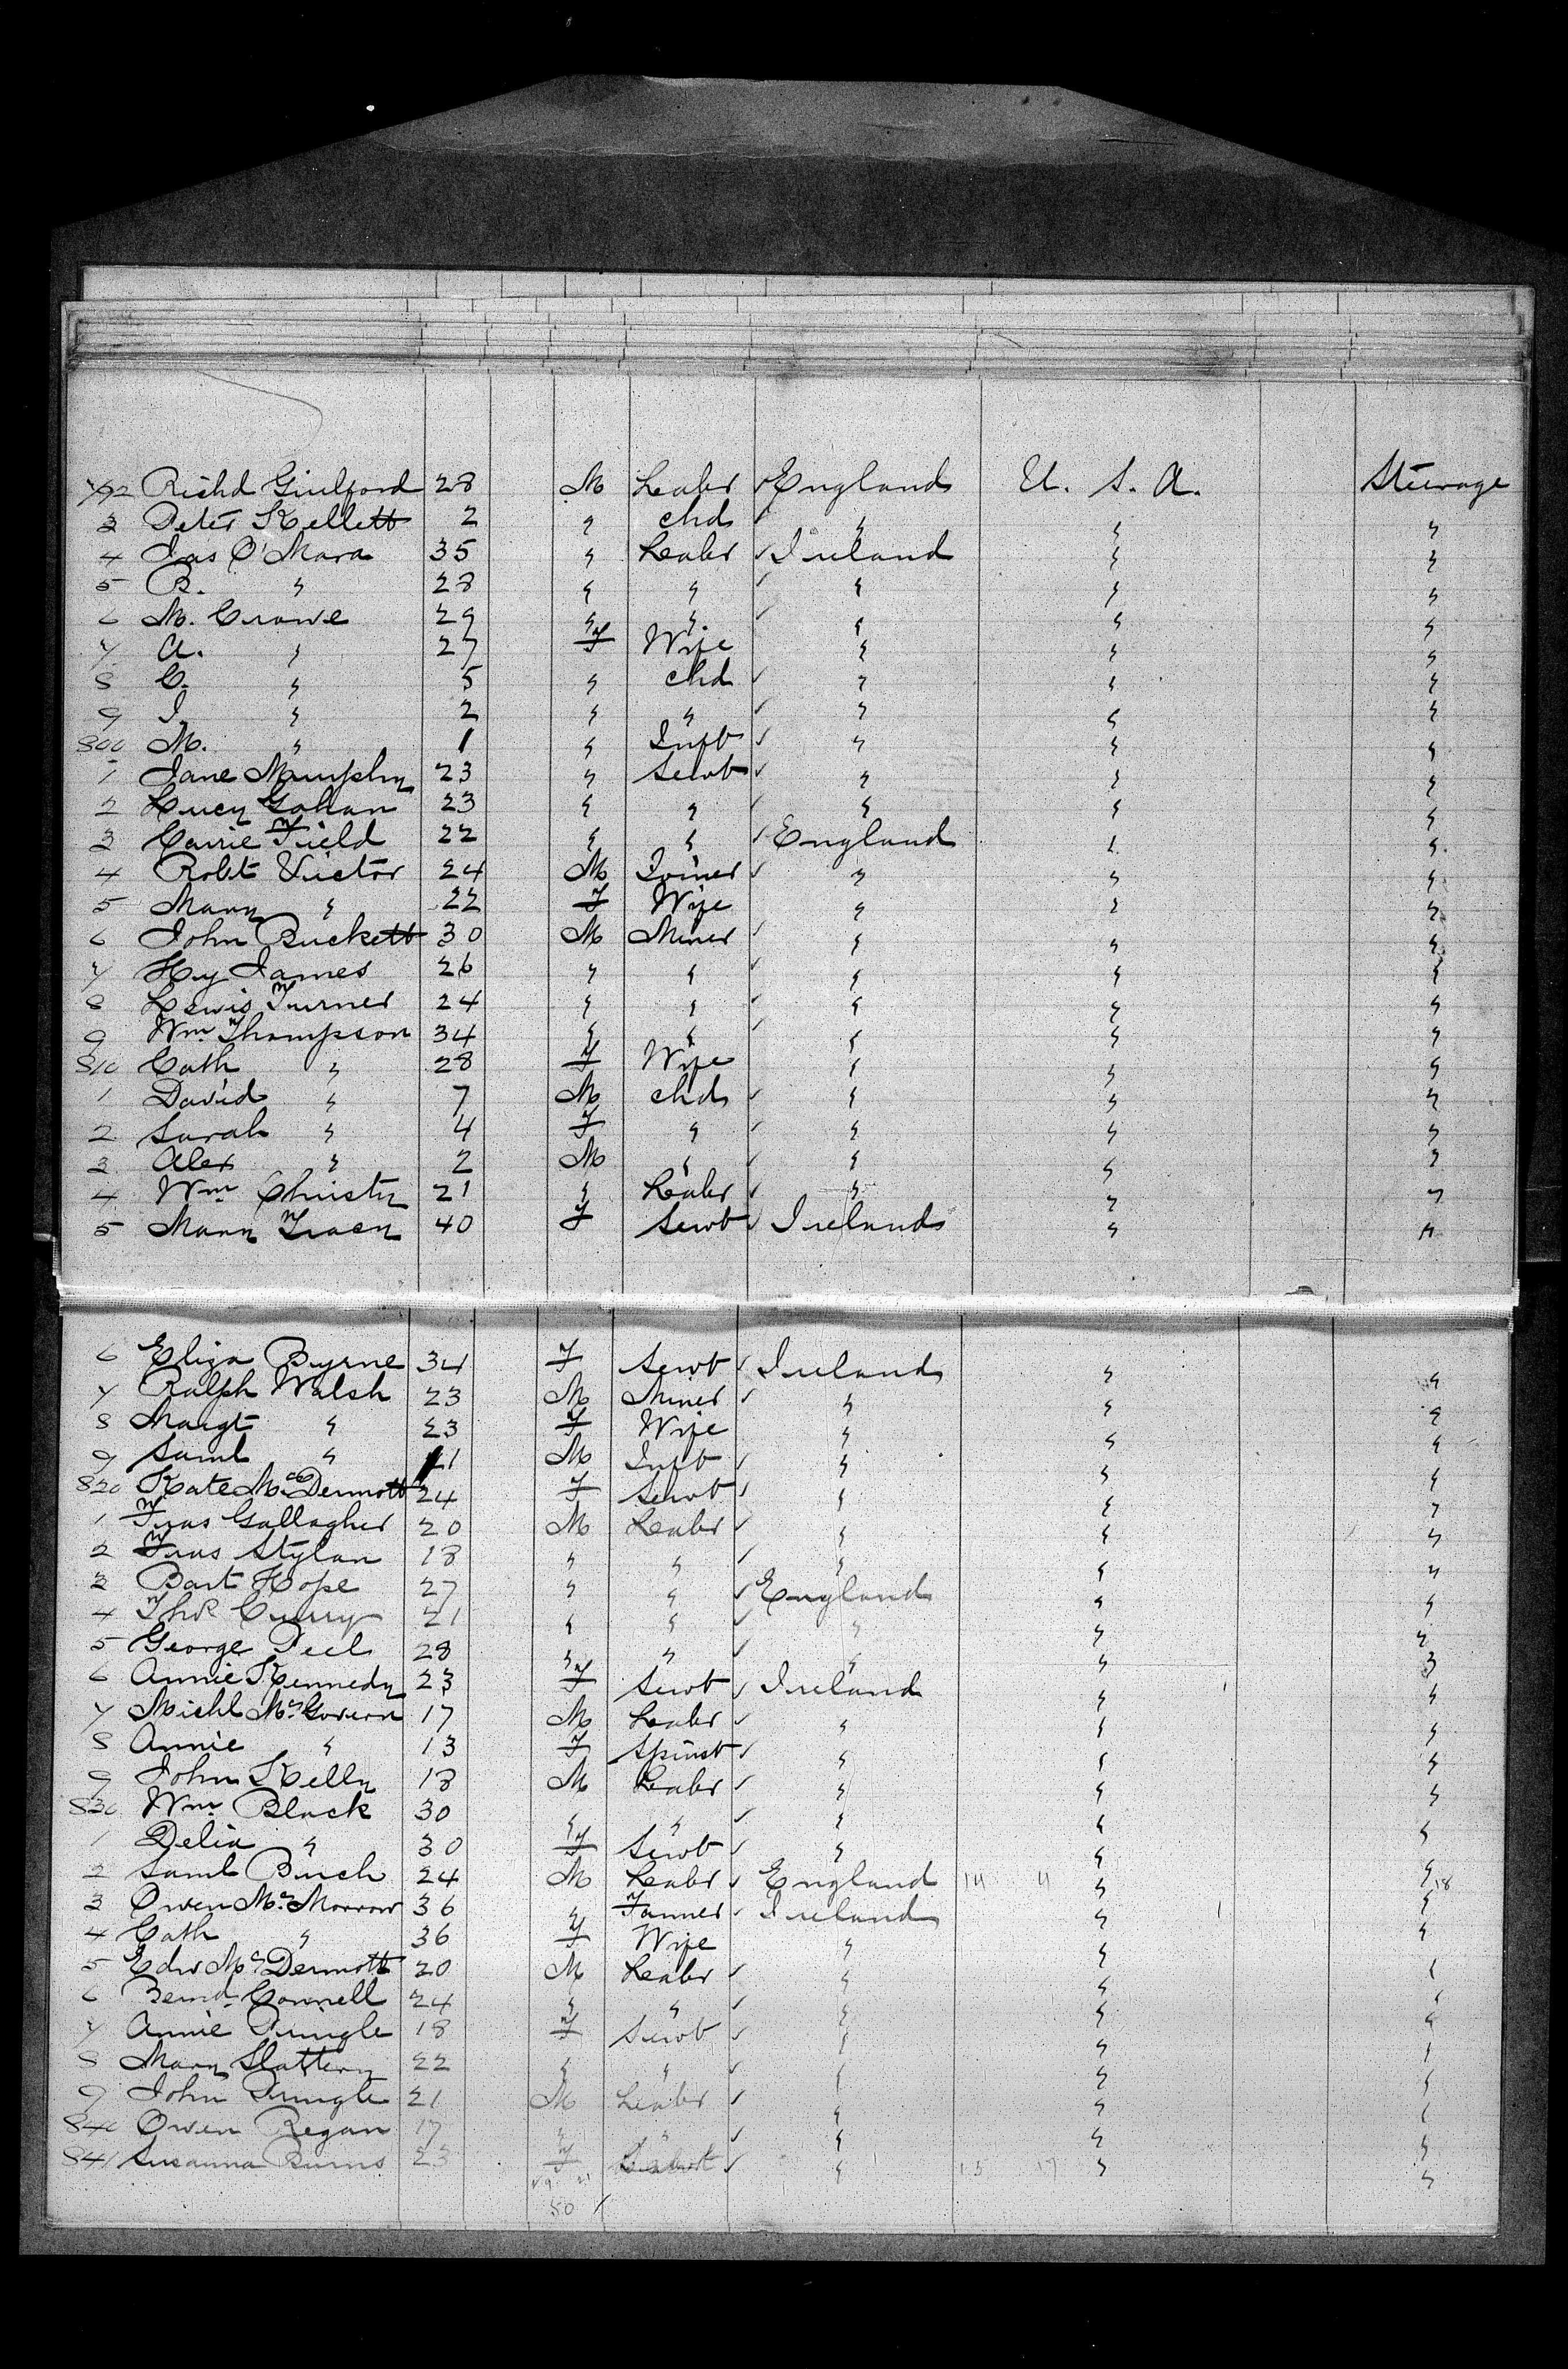 792 Richd Guilford 28 M Labr ✓ England U. S. A. Steerage
3 Peter Kellett 2 " chd ✓ " " "
4 Jas O'Mara 35 " Labr ✓ Ireland " "
5 B. " 28 " " ✓ " " "
6 M. Crowe 29 " " ✓ " " "
7 A. " 27 F Wife " " "
8 C. " 5 " chd ✓ " " "
9 J. " 2 " " ✓ " " "
800 M. " 1 " Inft ✓ " " "
1 Jane Murphy 23 " Servt ✓ " " "
2 Lucy Gahan 23 " " ✓ " " "
3 Carrie Field 22 " " ✓ England " "
4 Robt Victor 24 M Joiner ✓ " " "
5 Mary " 22 F Wife " " "
6 John Buckett 30 M Miner ✓ " " "
7 Hy James 26 " " ✓ " " "
8 Lewis Turner 24 " " ✓ " " "
9 Wm Thompson 34 " " ✓ " " "
810 Cath " 28 F Wife " " "
1 David " 7 M chd ✓ " " "
2 Sarah " 4 F " ✓ " " "
3 Alex " 2 M " ✓ " " "
4 Wm Christy 21 " Labr ✓ " " "
5 Mary Tracy 40 F Servt ✓ Ireland " "
6 Eliza Byrne 34 F Servt ✓ Ireland " "
7 Ralph Walsh 23 M Miner ✓ " " "
8 Margt " 23 F Wife " " "
9 Saml " 1 M Inft ✓ " " "
820 Kate McDermott 24 F Servt ✓ " " "
1 Fras Gallagher 20 M Labr ✓ " " "
2 Fras Stylan 18 " " ✓ " " "
3 Bart Hope 27 " " ✓ England " "
4 Thos Curry 21 " " ✓ " " "
5 George Peel 28 " " ✓ " " "
6 Annie Kennedy 23 F Servt ✓ Ireland " "
7 Michl McGovern 17 M Labr ✓ " " "
8 Annie " 13 F Spinst ✓ " " "
9 John Kelly 18 M Labr ✓ " " "
830 Wm Black 30 " " ✓ " " "
1 Delia " 30 F Servt ✓ " " "
2 Saml Burch 24 M Labr ✓ England " "
3 Owen McMorrow 36 " Farmer ✓ Ireland " "
4 Cath " 36 F Wife " " "
5 Edw McDermott 20 M Labr ✓ " " "
6 Bernd Connell 24 " " ✓ " " "
7 Annie Pringle 18 F Servt ✓ " " "
8 Mary Slattery 22 " " ✓ " " "
9 John Pringle 21 M Labr ✓ " " "
840 Owen Regan 17 " " ✓ " " "
841 Susanna Burns 23 F ✓ " " "
50